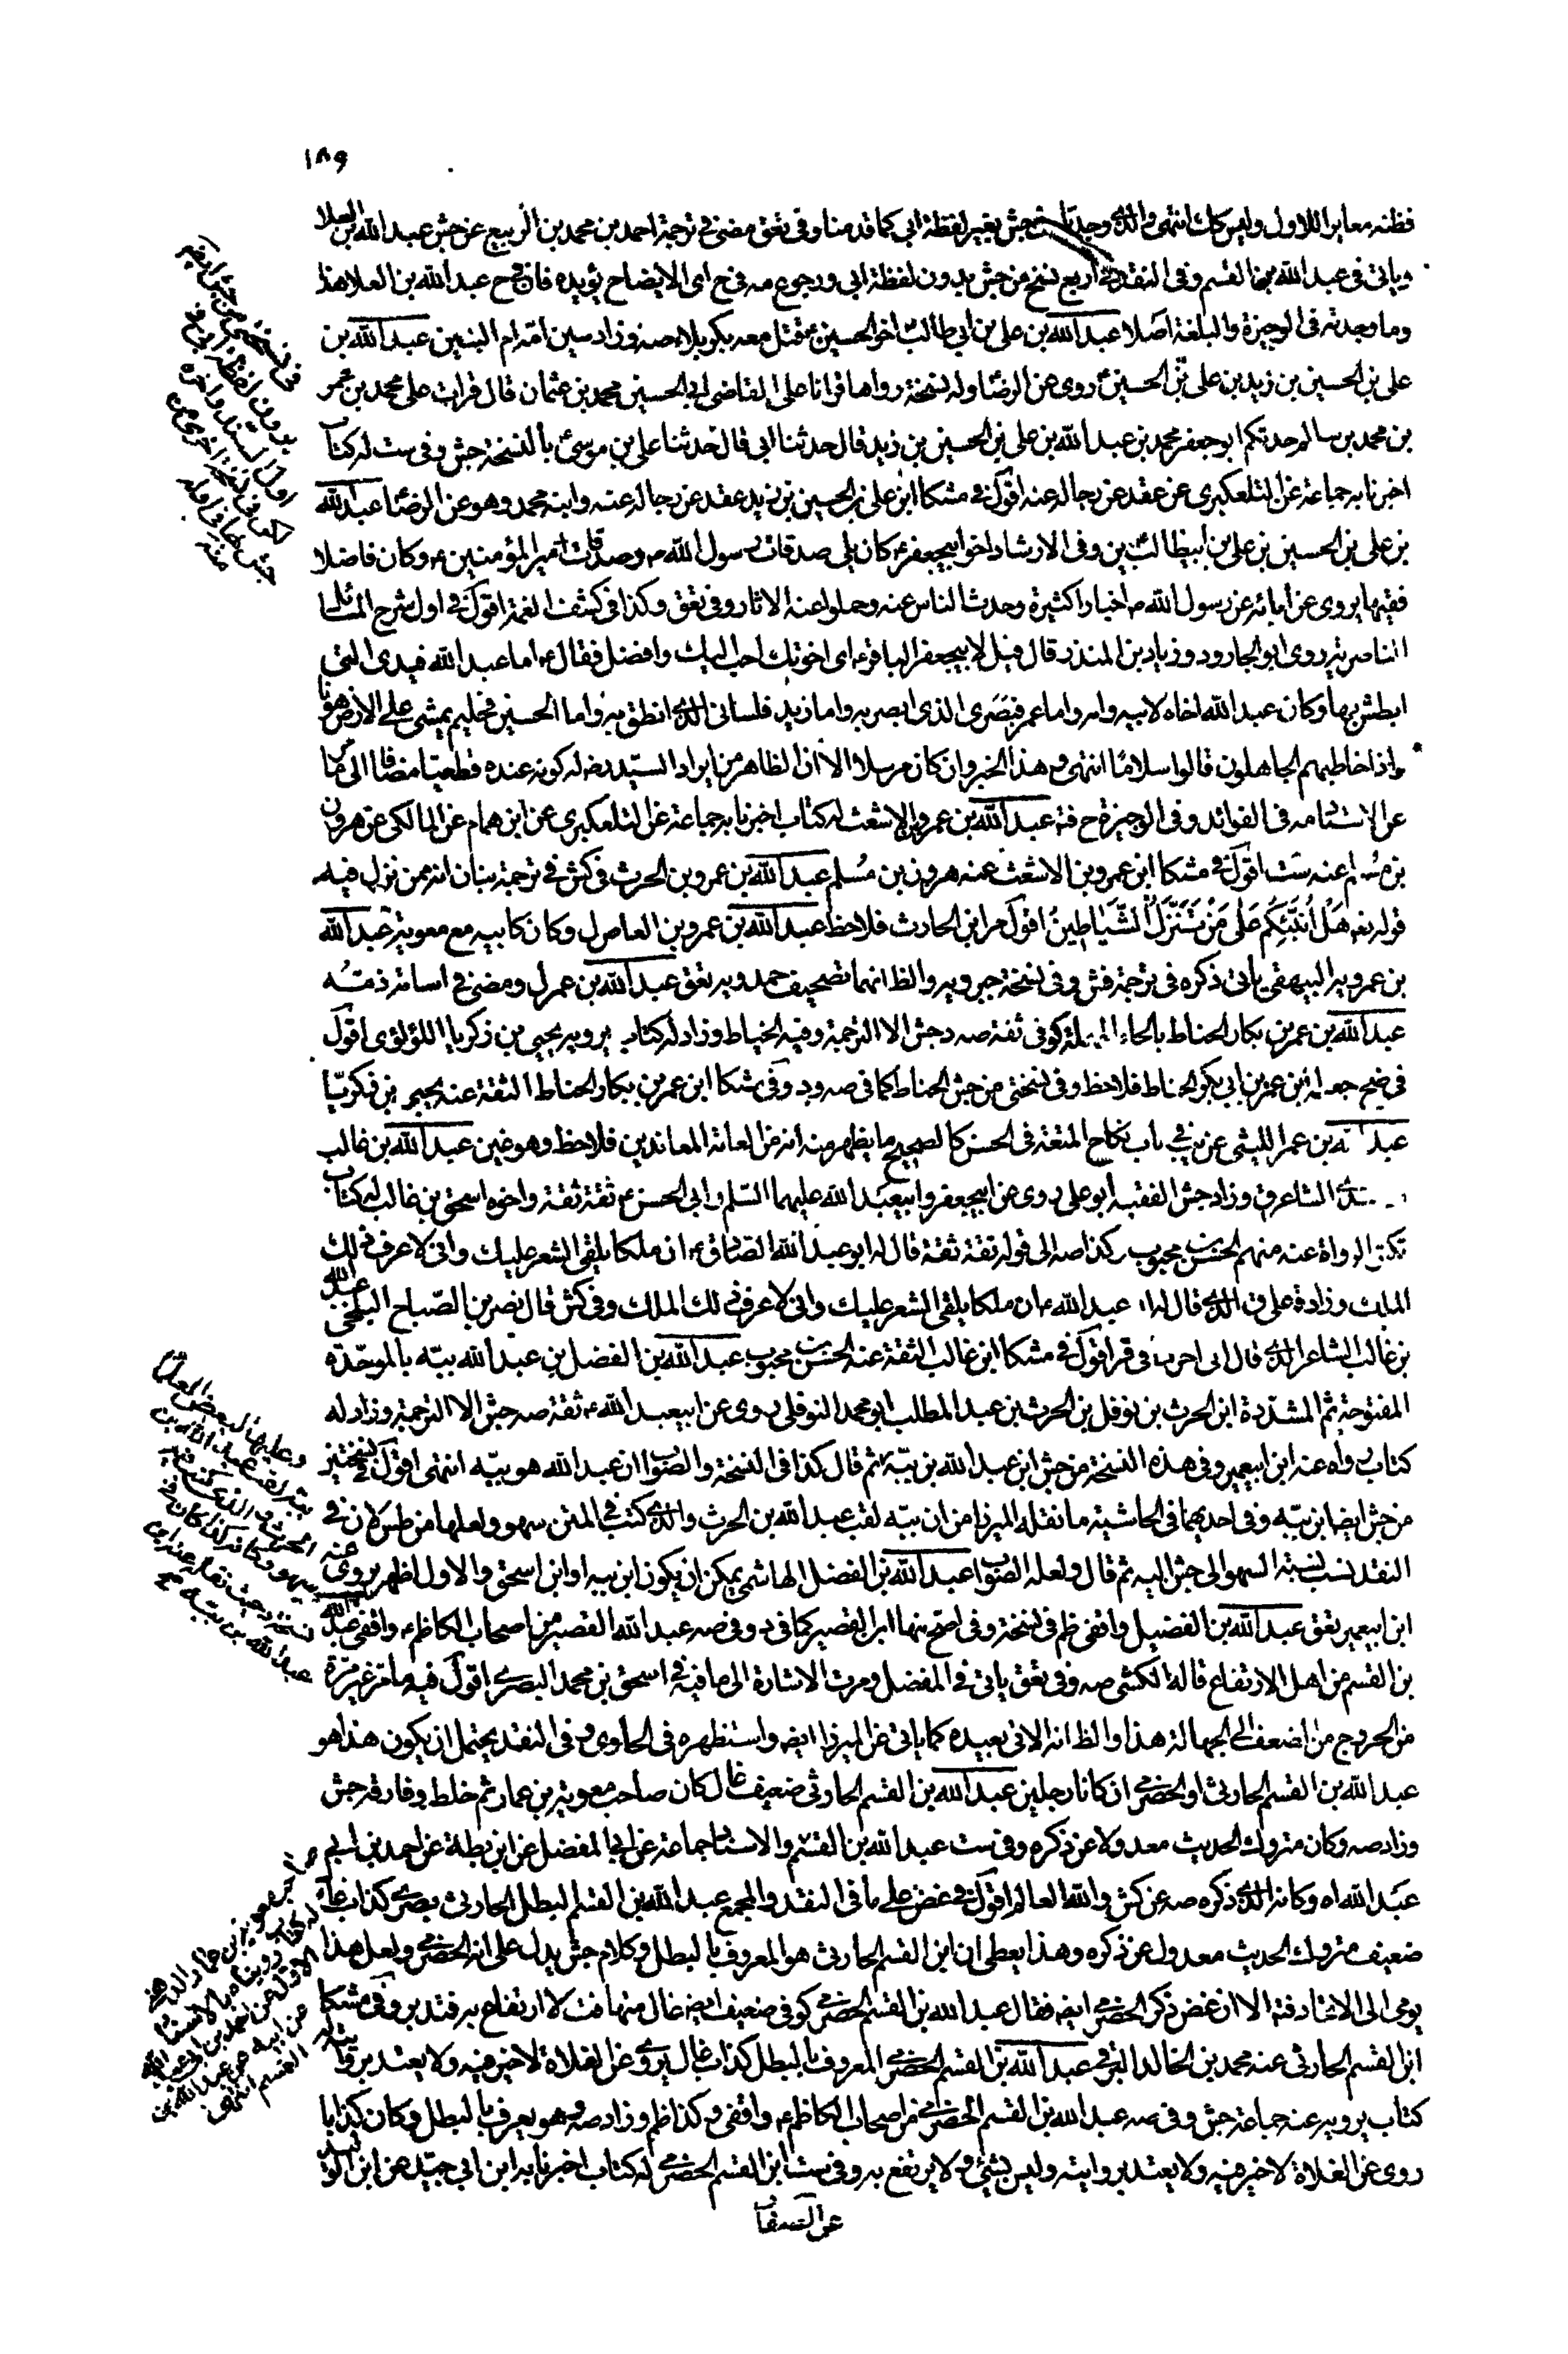 ١٨٩
فظنه مغايرا للاول وليس كك انتهى والذي وجدناه جش بغير لفظة ابي كما قدمنا وفي تعق مضى في ترجمة احمد بن محمد بن الربيع عن جش عبد الله بن العلا
وياتي في عبد الله بن القسم وفي النقد في اربع نسخ من جش بدون لفظة ابي ورجوع صه في ح اى الايضاح يؤيده فاذ ح عبد الله بن العلا هذا
وما وجدته في الوجيزة والبلغة اصلا عبد الله بن علي بن ابي طالب اخو الحسين ع قتل معه بكربلاء صه وزاد سين امه ام البنين عبد الله بن
علي بن الحسين بن زيد بن علي بن الحسين ع روى عن الرضا وله نسخة رواها قرانا على القاضي ابي الحسين محمد بن عثمان قال قرات على محمد بن عمر
بن محمد بن سالم حدثكم ابو جعفر محمد بن عبد الله بن علي بن الحسين بن زيد قال حدثنا ابي قال حدثنا علي بن موسى ع بالنسخة جش وفي ست له كتاب
اخبرنا به جماعة عن التلعكبري عن عقد عن رجاله عنه اقول في مشكا ابن علي بن الحسين بن زيد عقد عن رجاله عنه وابنه محمد وهو عن الرضا ع عبد الله
بن علي بن الحسين بن علي بن ابيطالب ين وفي الارشاد اخو ابيجعفر ع كان يلي صدقات رسول الله ص وصدقات امير المؤمنين ع وكان فاضلا
فقيها يروى عن ابائه عن رسول الله ص اخبارا كثيرة وحدث الناس عنه وحملوا عنه الاثار وفي تعق وكذا في كشف الغمة اقول في اول شرح المسائل
الناصرية روى ابو الجارود وزياد بن المنذر قال قيل لابيجعفر الباقر ع اى اخوتك احب اليك وافضل فقال ع اما عبد الله فيدى التى
ابطش بها وكان عبد الله اخاه لابيه وامه واما عمر فبصرى الذى ابصر به واما زيد فلسانى الذى انطق به واما الحسين فحليم يمشى على الارض هونا
واذا خاطبهم الجاهلون قالوا سلاما انتهى وهذا الخبر وان كان مرسلا الا ان الظاهر من ايراد السيد رضه له كونه عنده قطعيا مضافا الى ما
عن الاستاد مه في الفوائد وفي الوجيزة ح فتد عبد الله بن عمرو بن الاشعث له كتاب اخبرنا به جماعة عن التلعكبري عن ابن همام عن المالكى عن هرون
بن مسلم عنه ست اقول في مشكا ابن عمرو بن الاشعث عنه هرون بن مسلم عبد الله بن عمرو بن الحرث في كش في ترجمة بنان انه ممن نزل فيه
قوله تعه هل انبئكم على من تنزل الشياطين اقول مر ابن الحارث فلاحظ عبد الله بن عمرو بن العاص ل وكان كابيه مع معوية عبد الله
بن عمرويه البيهقي ياتى ذكره في ترجمة فش وفي نسخة جبرويه والظ انهما تصحيف حمدويه تعق عبد الله بن عمر ل ومضى في اسامة ذمه
عبد الله بن عمر بن بكار الحناط بالحاء المهملة كوفي ثقة صه د جش الا الترجمة وفيه الخياط وزاد له كتاب يرويه يحيى بن زكريا اللؤلؤى اقول
في ضيح جعله ابن عمر بن ابي بكر الحناط فلاحظ وفي نسختى من جش الحناط كما في صه ود وفي مشكا ابن عمر بن بكار الحناط الثقة عنه يحيى بن زكريا
عبد الله بن عمر الليثى عن في باب نكاح المتعة في الحسن كالصحيح ما يظهر منه انه من العامة المعاندين فلاحظ وهو غين عبد الله بن غالب
الاسدى الشاعر ق وزاد جش الفقيه ابو علي روى عن ابيجعفر وابيعبد الله عليهما السلم وابي الحسن ع ثقة ثقة واخوه اسحق بن غالب له كتاب
تكثر الرواة عنه منهم الحسن بن محبوب وكذا صه الى قوله ثقة ثقة قال له ابو عبد الله الصادق ع ان ملكا يلقى الشعر عليك وانى لاعرف ذلك
الملك وزاد قر على ق الذى قال له ابو عبد الله ع ان ملكا يلقى الشعر عليك وانى لاعرف ذلك الملك وفي كش قال نصر بن الصباح البلخى عبد الله
بن غالب الشاعر الذى قال اى احرب في قر اقول في مشكا ابن غالب الثقة عنه الحسن بن محبوب عبد الله بن الفضل بن عبد الله ببه بالموحدة
المفتوحة ثم المشددة ابن الحرث بن نوفل بن الحرث بن عبد المطلب ابو محمد النوفلى روى عن ابيعبد الله ع ثقة صه جش الا الترجمة وزاد له
كتاب رواه عنه ابن ابيعمير وفي هذه النسخة من جش ابن عبد الله بن ببة ثم قال كذا في النسخة والصواب ان عبد الله هو ببه انتهى اقول في نسختين
من جش ايضا ابن ببه وفي احديهما في الحاشية ما نقله الميرزا من ان ببه لقب عبد الله بن الحرث والذى كتب في المتن سهو ولعلها من طس لان في
النقد نسب نسبة السهو الى جش اليه ثم قال ولعله الصواب عبد الله بن الفضل الهاشمى يمكن ان يكون ابن ببه او ابن اسحق والاول اظهر يروى عنه
ابن ابيعمير تعق عبد الله بن الفضيل واقفى ظم في نسخة وفي اصح منها ابن القصير كما في د وفي صه عبد الله القصير من اصحاب الكاظم ع واقفى عبد الله
بن القسم من اهل الارتفاع قاله الكشى صه وفي تعق ياتى في المفضل ومرت الاشارة الى ما فيه في اسحق بن محمد البصرى اقول فيه ما مر غير مرة
من الخروج من الضعف الى الجهالة هذا والظ انه الاتى بعيده كما ياتى عن الميرزا ايضه واستظهره في الحاوى وفي النقد يحتمل ان يكون هذا هو
عبد الله بن القسم الحارثى او الحضرمى ان كانا رجلين عبد الله بن القسم الحارثى ضعيف غال كان صاحب معوية بن عمار ثم خلط وفارقه جش
وزاد صه وكان متروك الحديث معدولا عن ذكره وفي ست عبد الله بن القسم والاسناد جماعة عن ابي المفضل عن ابن بطة عن احمد بن ابي
عبد الله اه وكانه الذى ذكره صه عن كش والله العالم اقول في غض على ما في النقد والمجمع عبد الله بن القسم البطل الحارثى بصرى كذاب غال
ضعيف متروك الحديث معدول عن ذكره وهذا يعطى ان ابن القسم الحارثى هو المعروف بالبطل وكلام جش يدل على انه الحضرمى ولعل هذا
يومى الى الاتحاد فتد الا ان غض ذكر الحضرمى ايضه فقال عبد الله بن القسم الحضرمى كوفي ضعيف ايضه غال متهافت لا ارتفاع به فتدبر وفي مشكا
ابن القسم الحارثى عنه محمد بن الخالد البرقى عبد الله بن القسم الحضرمى المعروف بالبطل كذاب غال يروى عن الغلاة لا خير فيه ولا يعتد بروايته له
كتاب يرويه عنه جماعة جش وفي صه عبد الله بن القسم الحضرمى من اصحاب الكاظم ع واقفى وكذا ظم وزاد صه وهو يعرف بالبطل وكان كذابا
روى عن الغلاة لا خير فيه ولا يعتد بروايته وليس بشئ ولا يرتفع به وفي ست ابن القسم الحضرمى له كتاب اخبرنا به ابن ابي جيد عن ابن الوليد
عن الصفار